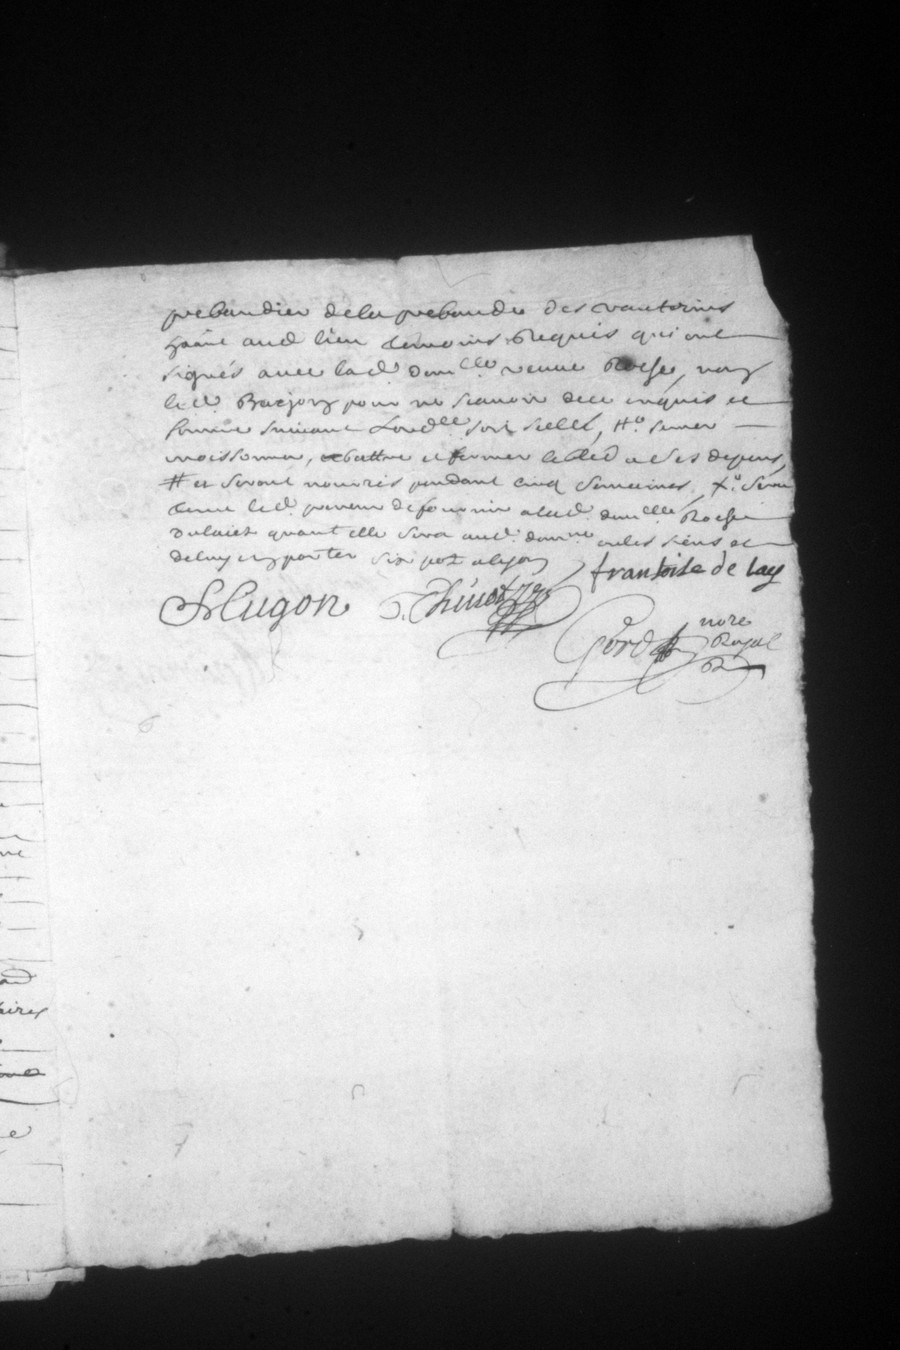 prebandier de la prebande des vautorins
aud lieu temoins Requis qui ont
signés avec lad. dam.lle veuve Roche, non
led. Barjon pour ne scavoir de ce enquis et
somme suivant Lord.ce #.o semer
moissonner, abattre et fermer le bled a ses depens,
# et seront nourris pendant cinq semaines, x.o sera
tenu led. preneur de fournir a lad. dam.lle Roche
du laict quant elle sera aud. dom.ne ou les siens et
de luy en porter six pot a lyon
fransoise de lay
Hugon
nore
Royal